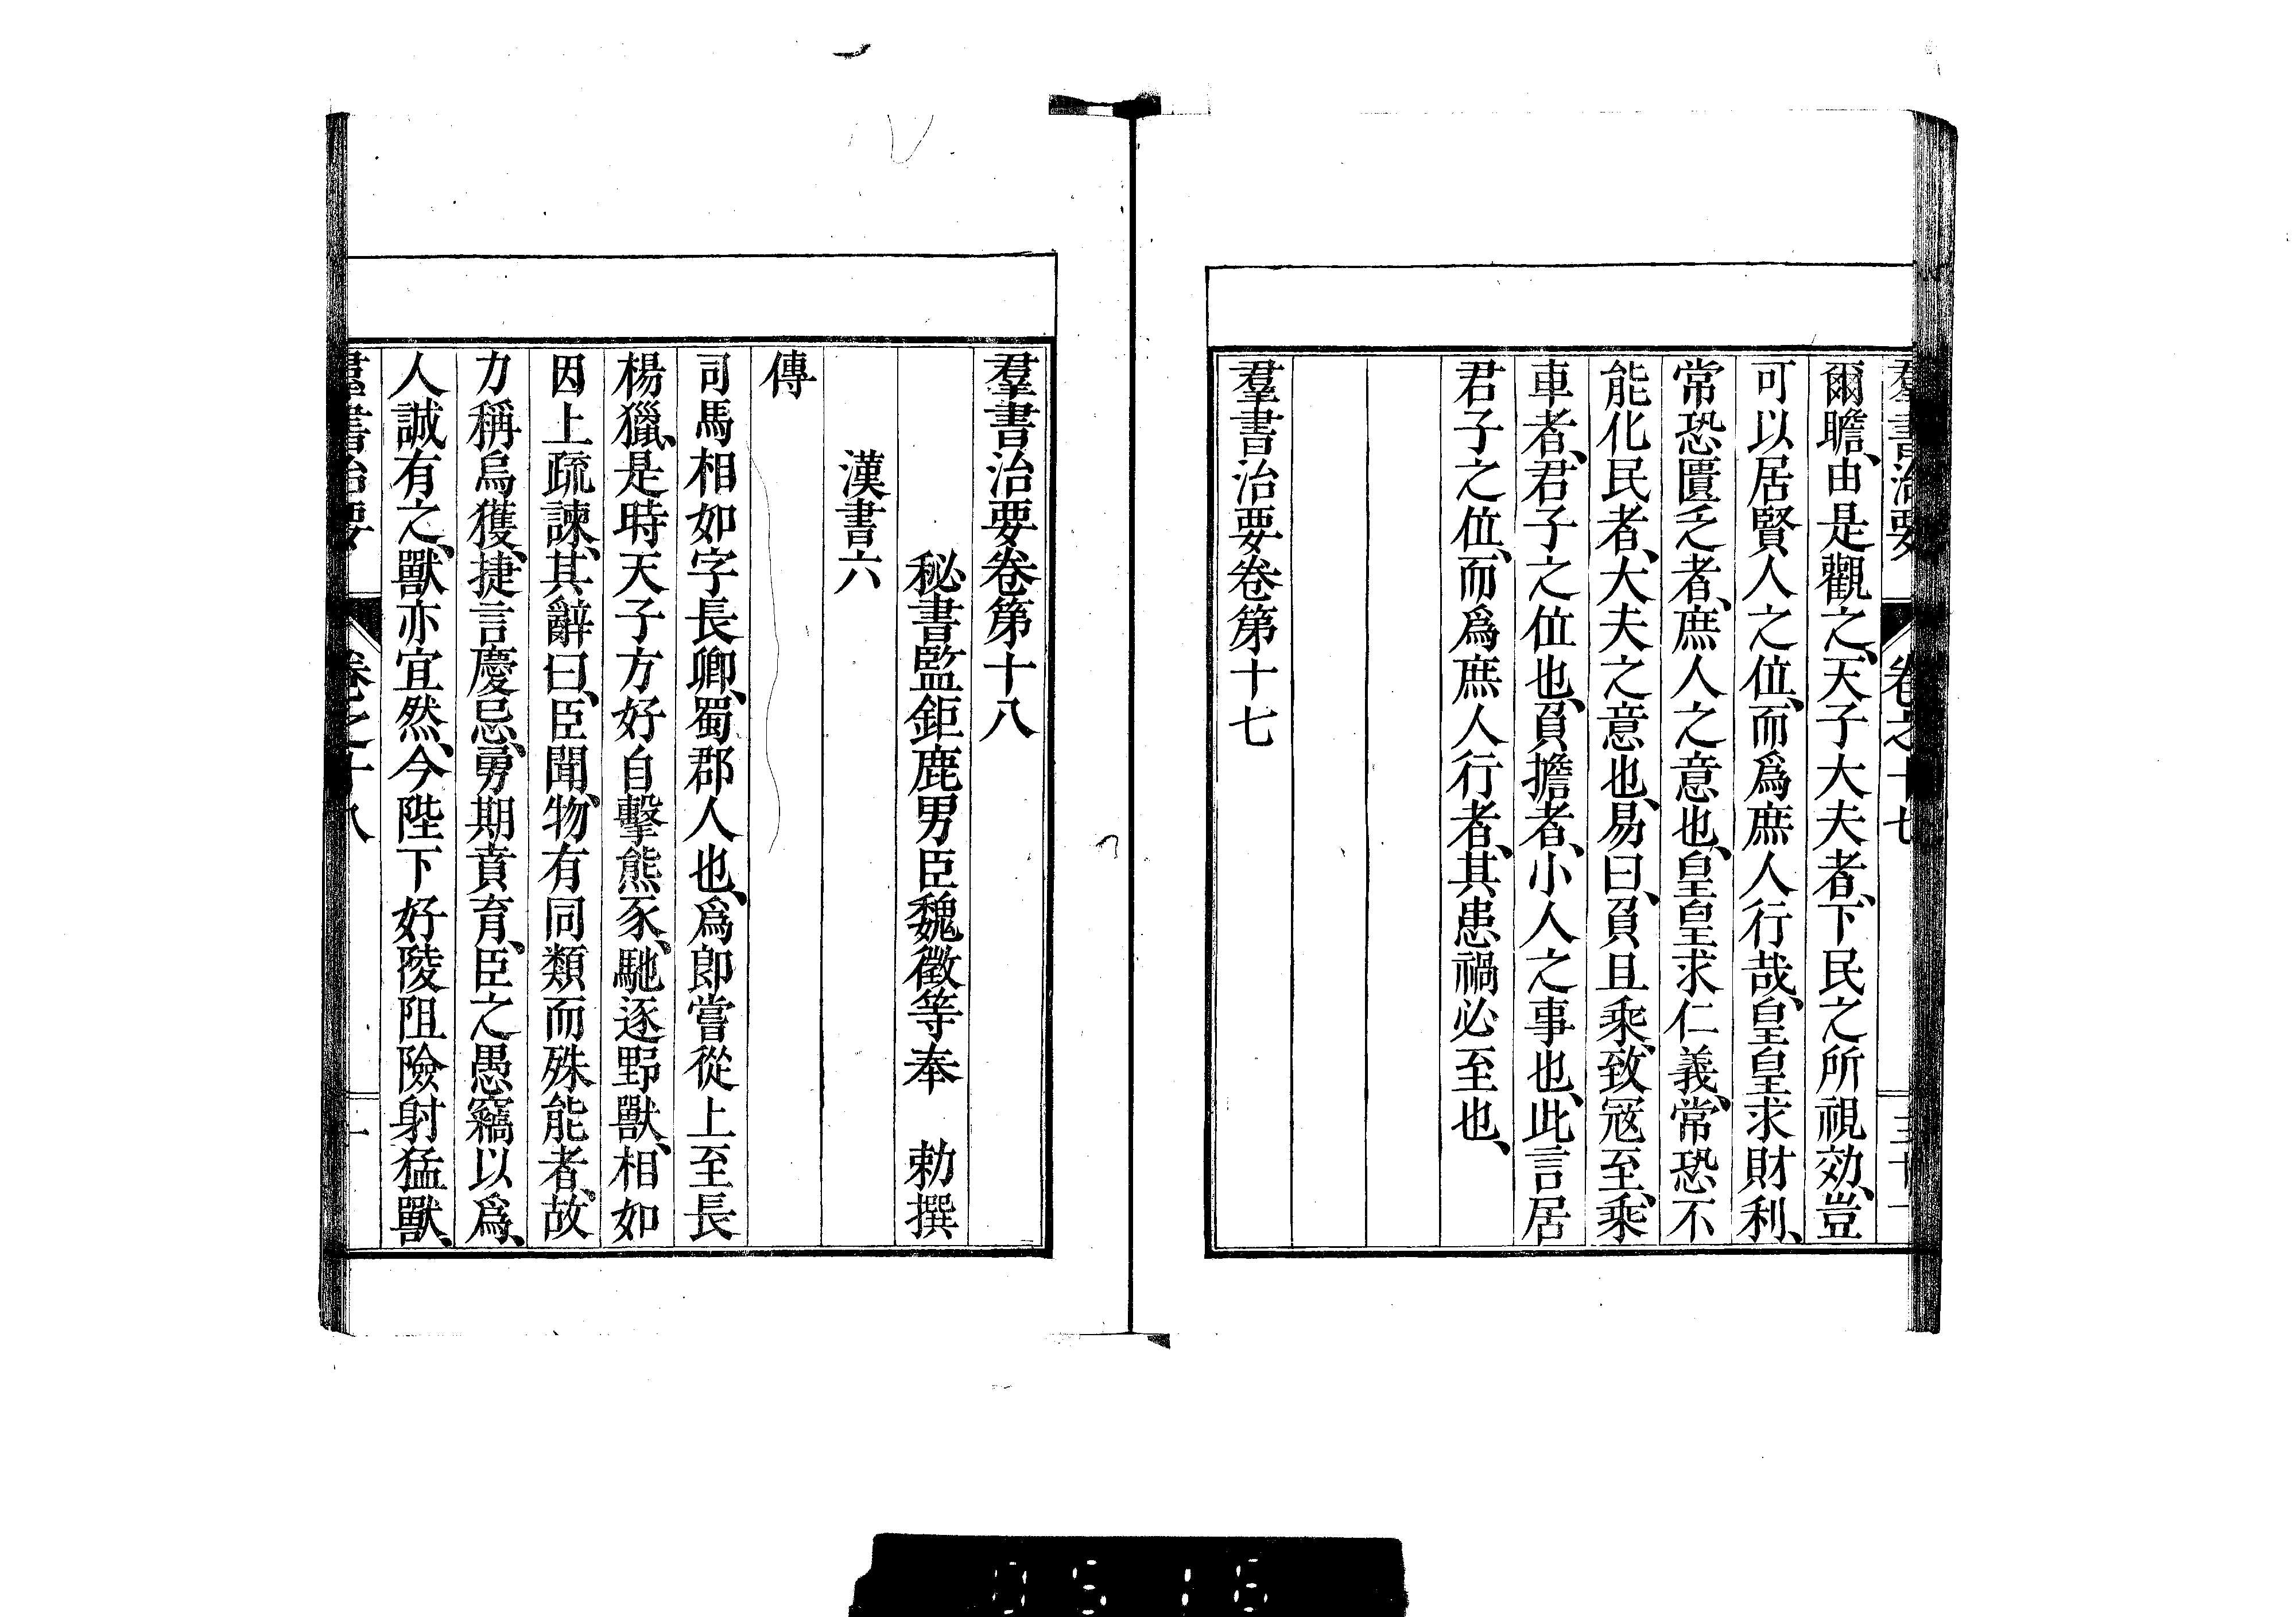 羣書治要 卷之十七 三十一
爾瞻、由是觀之、天子大夫者、下民之所視効、豈
可以居賢人之位、而爲庶人行哉、皇皇求財利、
常恐匱乏者、庶人之意也、皇皇求仁義、常恐不
能化民者、大夫之意也、易曰、負且乘、致寇至、乘
車者、君子之位也、負擔者、小人之事也、此言居
君子之位、而爲庶人行者、其患禍必至也、
羣書治要卷第十七
羣書治要卷第十八
秘書監鉅鹿男臣魏徵等奉 勅撰
漢書六
傳
司馬相如字長卿、蜀郡人也、爲郎嘗從上至長
楊獵、是時天子方好自擊熊豕、馳逐野獸、相如
因上疏諫、其辭曰、臣聞、物有同類而殊能者、故
力稱烏獲、捷言慶忌、勇期賁育、臣之愚竊以爲、
人誠有之、獸亦宜然、今陛下好陵阻險射猛獸、
羣書治要 卷之十八 一
0516